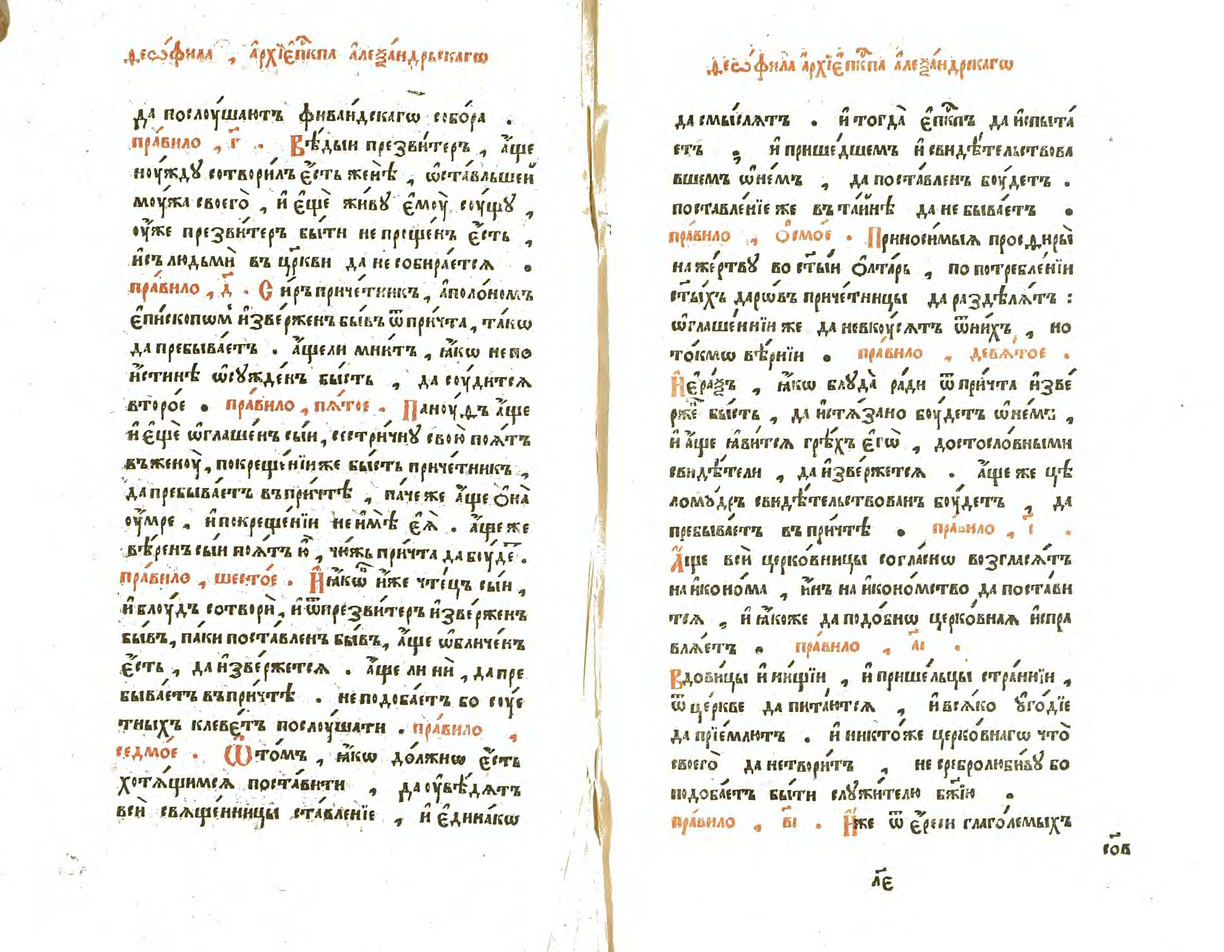 Ѳеѡ́фила , а҆рхїе҆пⷭ҇кпа а҆леѯа́ндрьскагѡ
да послоу́шаютъ фиваи́дскагѡ собо́ра .
пра́вило , г҃ . Вѣ́дыи презви́теръ , а҆́ще
ноу́жду сотвори́лъ є҆́сть женѣ̀ , ѡ҆ста́вльшеи
моу́жа своего̀ , и҆ є҆щѐ жи́ву є҆моу̀ соу́щу ,
оу҆́же презви́теръ бы́ти не проще́нъ є҆́сть ,
и҆съ людьмѝ въ цр҃кви да не собира́ется .
пра́вило , д҃ . Си́ръ приче́тникъ , а҆поло́номъ
є҆пи́скопѡмъ и҆зве́рженъ бы́въ ѿ при́чта , та́кѡ
да пребыва́етъ . а҆́щели мни́тъ , ꙗ҆́кѡ не по
и҆́стинѣ ѡ҆сужде́нъ бы́сть , да соу́дится
второ́е . пра́вило , пѧ́тое . Паноу́ѳъ а҆́ще
и҆ є҆щѐ ѡ҆глаше́нъ сы́и , сестри́чну свою̀ поѧ́тъ
въ женоу̀ , по креще́нїи же бы́сть приче́тникъ ,
да пребыва́етъ въ при́чтѣ , па́че же а҆́ще ѻ҆на̀
оу҆́мре , и҆ по креще́нїи не и҆мѣ̀ є҆ѧ̀ . а҆́ще же
вѣ́ренъ сы́и поѧ́тъ ю҆̀ , чю́жь при́чта да бу́деⷮ .
пра́вило , шесто́е . И҆ ꙗ҆́кѡв и҆́же чте́цъ сы́и ,
и҆ блоу́дъ сотворѝ , и҆ ѿ презви́теръ и҆зве́рженъ
бы́въ , па́ки поста́вленъ бы́въ , а҆́ще ѡ҆бличе́нъ
є҆́сть , да и҆зве́ржется . а҆́ще ли нѝ , да пре
быва́етъ въ при́чтѣ . не подоба́етъ бо соуе́
тныхъ клеве́тъ послоу́шати . пра́вило ,
седмо́е . Ѿ то́мъ , ꙗ҆́кѡ до́лжнѡ є҆́сть
хотѧ́щимся поста́вити , да оу҆вѣ́дѧтъ
всѝ свѧще́нницы ставле́нїе , и҆ є҆дина́кѡ
Ѳеѡ́фила а҆рхїе҆пⷭ҇кпа а҆леѯа́ндрскагѡ
да смы́слѧтъ . и҆ тогда̀ є҆пⷭ҇кпъ да и҆спыта́
етъ , и҆ прише́дшемъ и҆ свидѣ́тельствова
вшемъ ѡ҆не́мъ , да поста́вленъ боу́детъ .
поставле́нїе же въ та́йнѣ да не быва́етъ .
пра́вило , ѻ҆смо́е . Приноси́мыѧ просѳиры̀
на же́ртву во ст҃ы́и ѻ҆лта́рь , по потребле́нїи
ст҃ы́хъ даро́въ приче́тницы да раздѣлѧ́тъ :
ѡ҆глаше́ннїи же да не вкоу́сѧтъ ѿ ни́хъ , но
то́кмѡ вѣ́рнїи . пра́вило , девѧ́тое .
И҆ера́ѯъ , ꙗ҆́кѡ блуда̀ ради ѿ при́чта и҆зве́
рже бы́сть , да и҆стѧ́зано боу́детъ ѡ҆не́мъ ,
и҆ а҆́ще ꙗ҆ви́тсѧ грѣ́хъ є҆гѡ̀ , достосло́вными
свидѣ́тели , да и҆зве́ржется . а҆́ще же цѣ
ломоу́дръ свидѣ́тельствованъ боу́детъ , да
пребыва́етъ въ при́чтѣ . пра́вило , і҃ .
А҆́ще всѝ церко́вницы согла́снѡ возгласѧ́тъ
на и҆коно́ма , и҆́нъ на и҆коно́мство да поста́ви
тсѧ , и҆ ꙗ҆́коже да подо́бнѡ церко́внаѧ и҆спра
влѧ́етъ . пра́вило , а҃і .
Вдови́цы и҆ ни́щїи , и҆ прише́льцы стра́ннїи ,
ѿ це́ркве да пита́ютсѧ , и҆ всѧ́ко оу҆го́дїе
да прїе́млютъ . и҆ никто́же церко́внагѡ что̀
своего̀ да не твори́тъ , не сребролюби́ву бо
подоба́етъ бы́ти слу́жителю бж҃їю .
пра́вило , в҃і . И҆́же ѿ є҆́реси глаго́лемыхъ
сѡв
л҃є